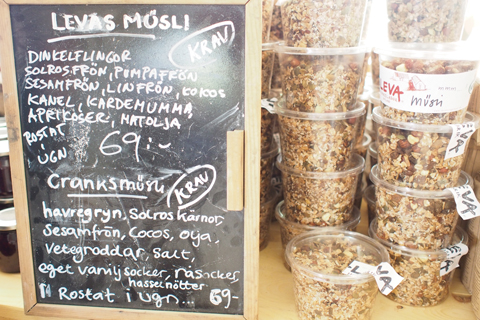 LEVAS MÜSLI
KRAV
DINKELFLINGOR
SOLROSFRÖN, PUMPAFRÖN
SESAMFRÖN, LINFRÖN, KOKOS
KANEL, KARDEMUMMA,
APRIKOSER, MATOLJA
ROSTAT
i UGN
69:-
Cranksmüsli
KRAV
havregryn, Solroskärnor,
Sesamfrön, Cocos, olja,
Vetegroddar, Salt,
eget vaniljsocker, råsocker,
hasselnötter
Rostat i ugn... 69-
LEVA
müsli